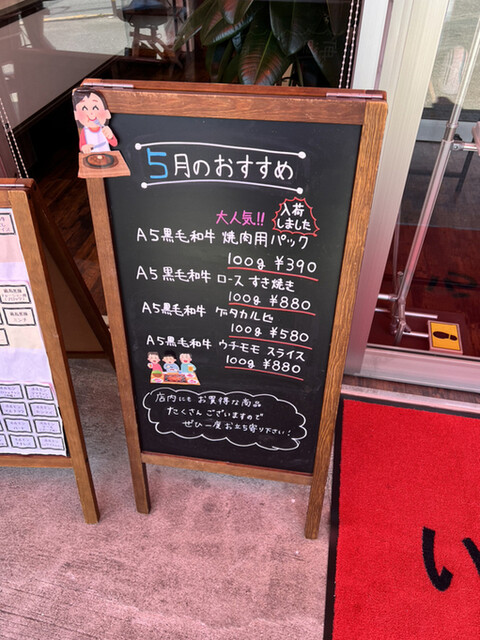 5月のおすすめ
大人気!!
入荷
しました
A5黒毛和牛 焼肉用パック
100g ¥390
A5黒毛和牛 ロース すき焼き
100g ¥880
A5黒毛和牛 ゲタカルビ
100g ¥580
A5黒毛和牛 ウチモモ スライス
100g ¥880
店内にも お買得な商品
たくさん ございますので
ぜひ一度 お立ち寄り下さい!
い